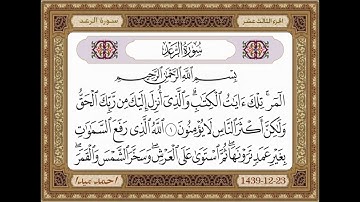 الجزء الثالث عشر
سورة الرعد
سُورَةُ الرَّعْدِ
بِسْمِ اللَّهِ الرَّحْمَٰنِ الرَّحِيمِ
الٓمٓر ۚ تِلْكَ ءَايَٰتُ ٱلْكِتَٰبِ ۗ وَٱلَّذِىٓ أُنزِلَ إِلَيْكَ مِن رَّبِّكَ ٱلْحَقُّ
وَلَٰكِنَّ أَكْثَرَ ٱلنَّاسِ لَا يُؤْمِنُونَ ١ ٱللَّهُ ٱلَّذِى رَفَعَ ٱلسَّمَٰوَٰتِ
بِغَيْرِ عَمَدٍ تَرَوْنَهَا ۖ ثُمَّ ٱسْتَوَىٰ عَلَى ٱلْعَرْشِ ۖ وَسَخَّرَ ٱلشَّمْسَ وَٱلْقَمَرَ ۖ
1439-12-23